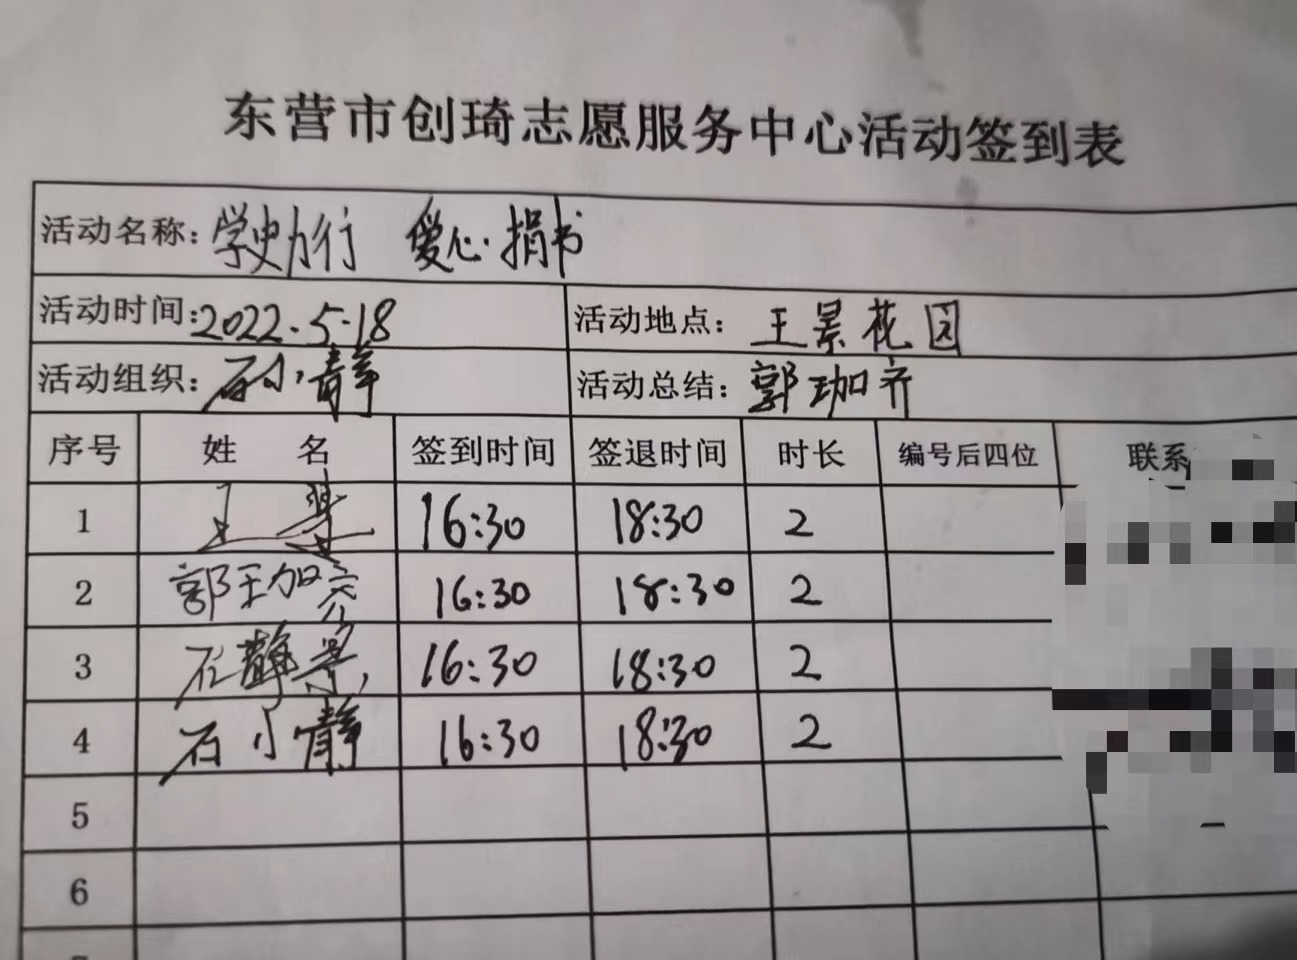 东营市创琦志愿服务中心活动签到表
活动名称：学史力行 爱心捐书
活动时间：2022.5.18 活动地点：王景花园
活动组织：石小静 活动总结：郭珈齐
序号 姓 名 签到时间 签退时间 时长 编号后四位 联系
1 王 16:30 18:30 2
2 郭珈齐 16:30 18:30 2
3 石静景 16:30 18:30 2
4 石小静 16:30 18:30 2
5
6